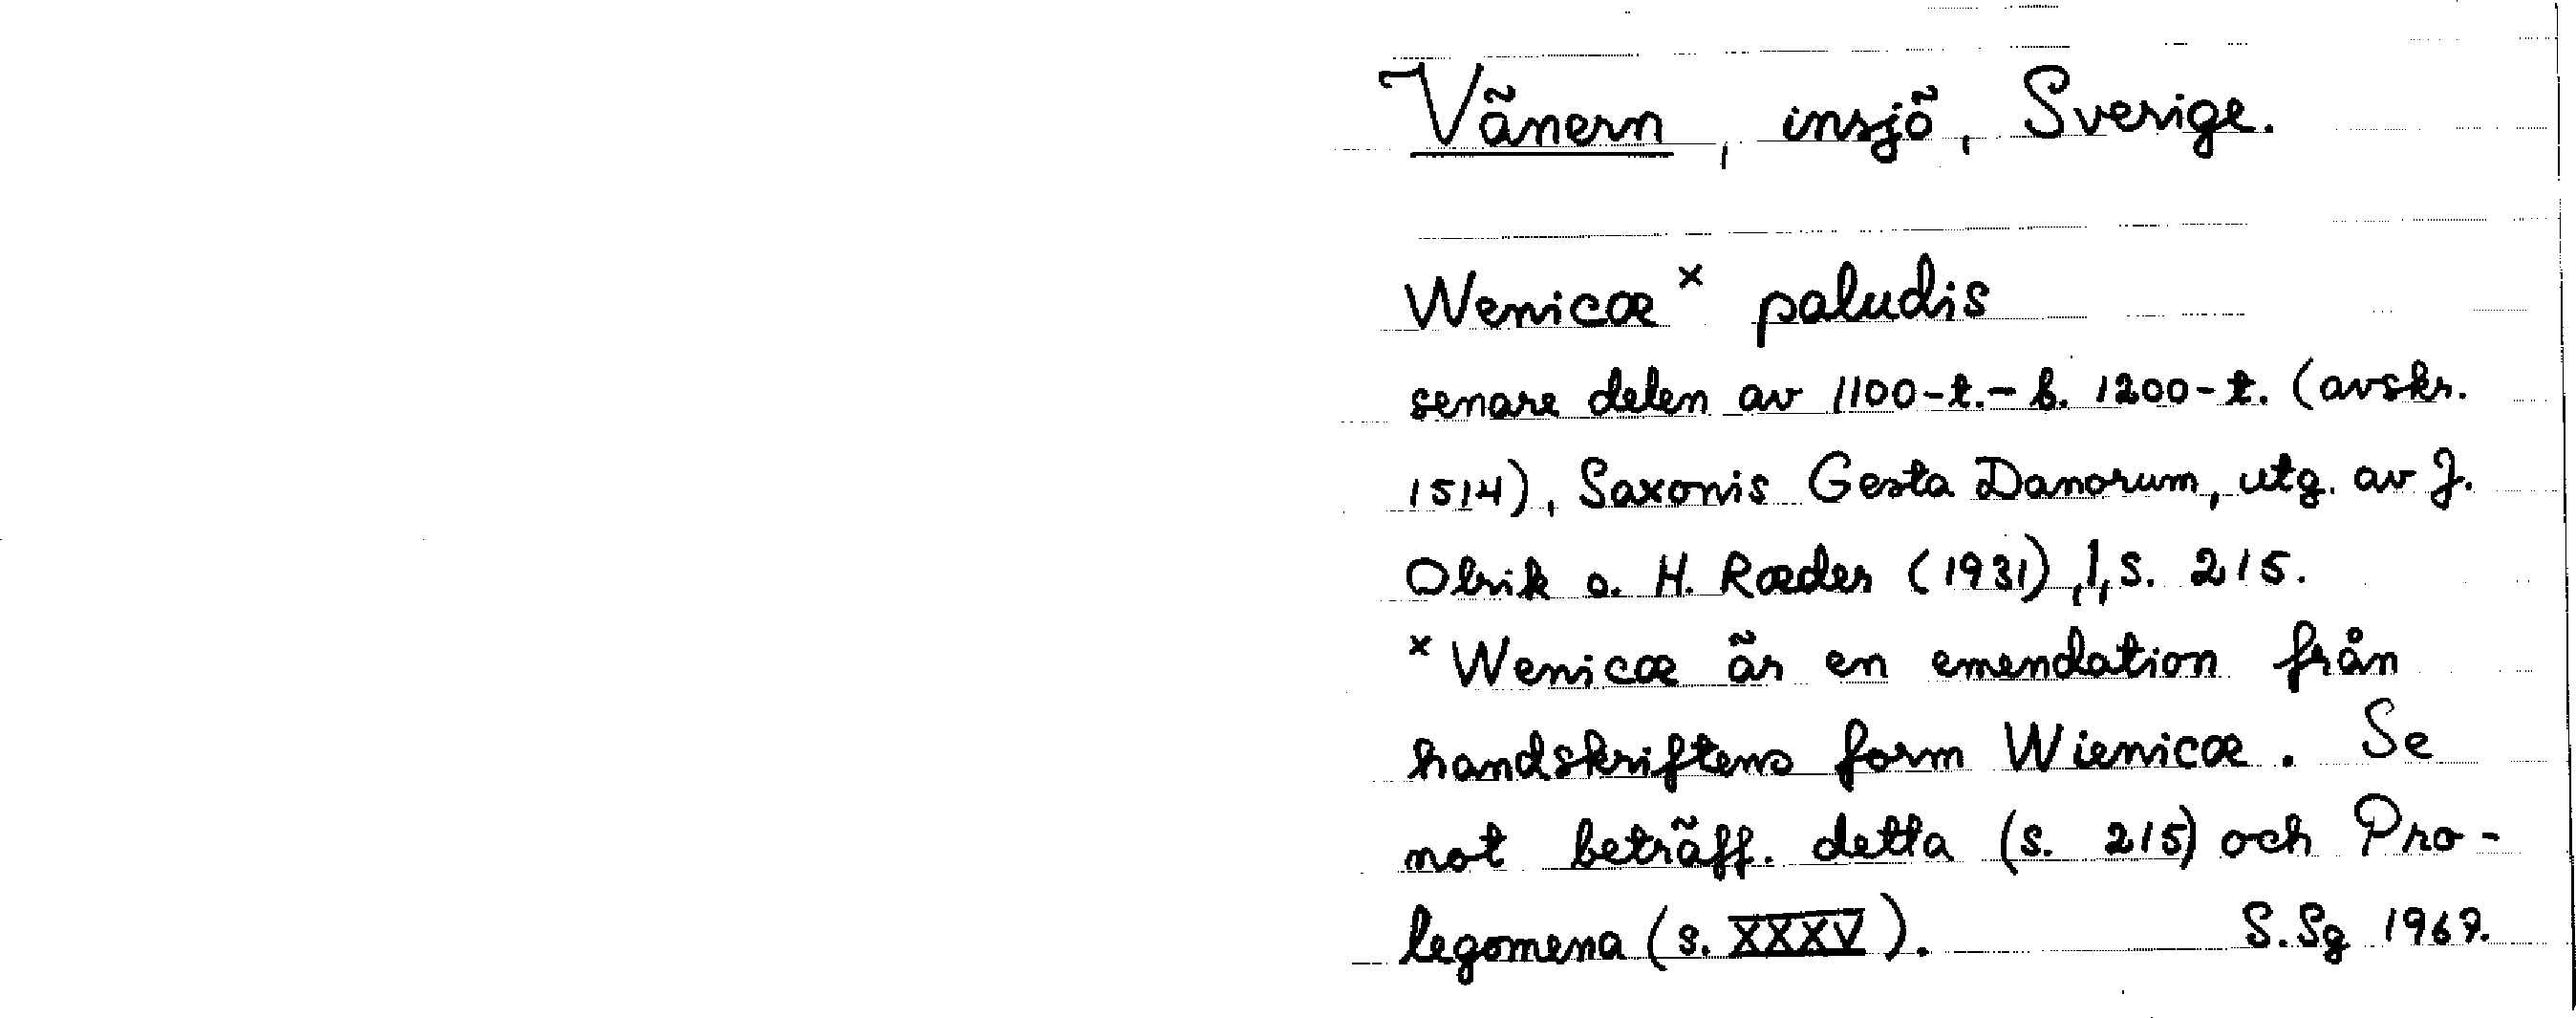 Vänern, insjö, Sverige.
Wenicæ x paludis
senare delen av 1100-t.- b. 1200-t. (avskr.
1514), Saxonis Gesta Danorum, utg. av J.
Olrik o. H. Ræder (1931), 1, s. 215.
x Wenicæ är en emendation från
handskriftens form Wienicæ. Se
not beträff. detta (s. 215) och Pro-
legomena (s. XXXV). S.Sg 1967.